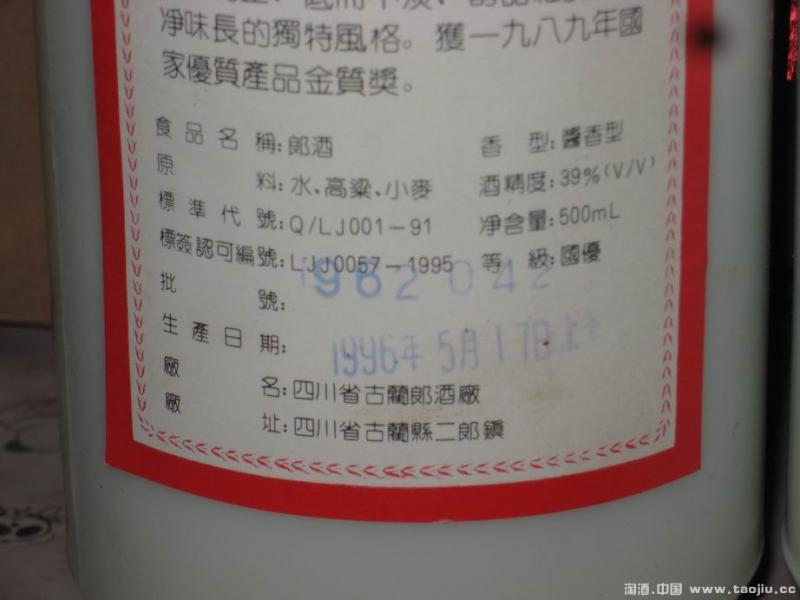 淨味長的獨特風格。獲一九八九年國
家優質產品金質獎。
食品名稱：郎酒 香型：醬香型
原料：水、高粱、小麥 酒精度：39%(V/V)
標準代號：Q/LJ001-91 净含量：500mL
標簽認可編號：LJJ0057-1995 等級：國優
批號：962042
生產日期：1996年5月17日上
廠名：四川省古藺郎酒廠
廠址：四川省古藺縣二郎鎮
淘酒.中国 www.taojiu.cc